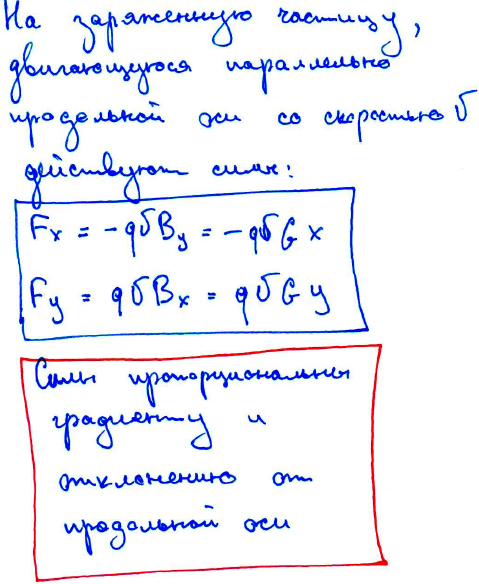 На заряженную частицу,
двигающуюся параллельно
продольной оси со скоростью υ
действуют силы:
Fx = -qυBy = -qυG x
Fy = qυBx = qυG y
Силы пропорциональны
градиенту и
отклонению от
продольной оси